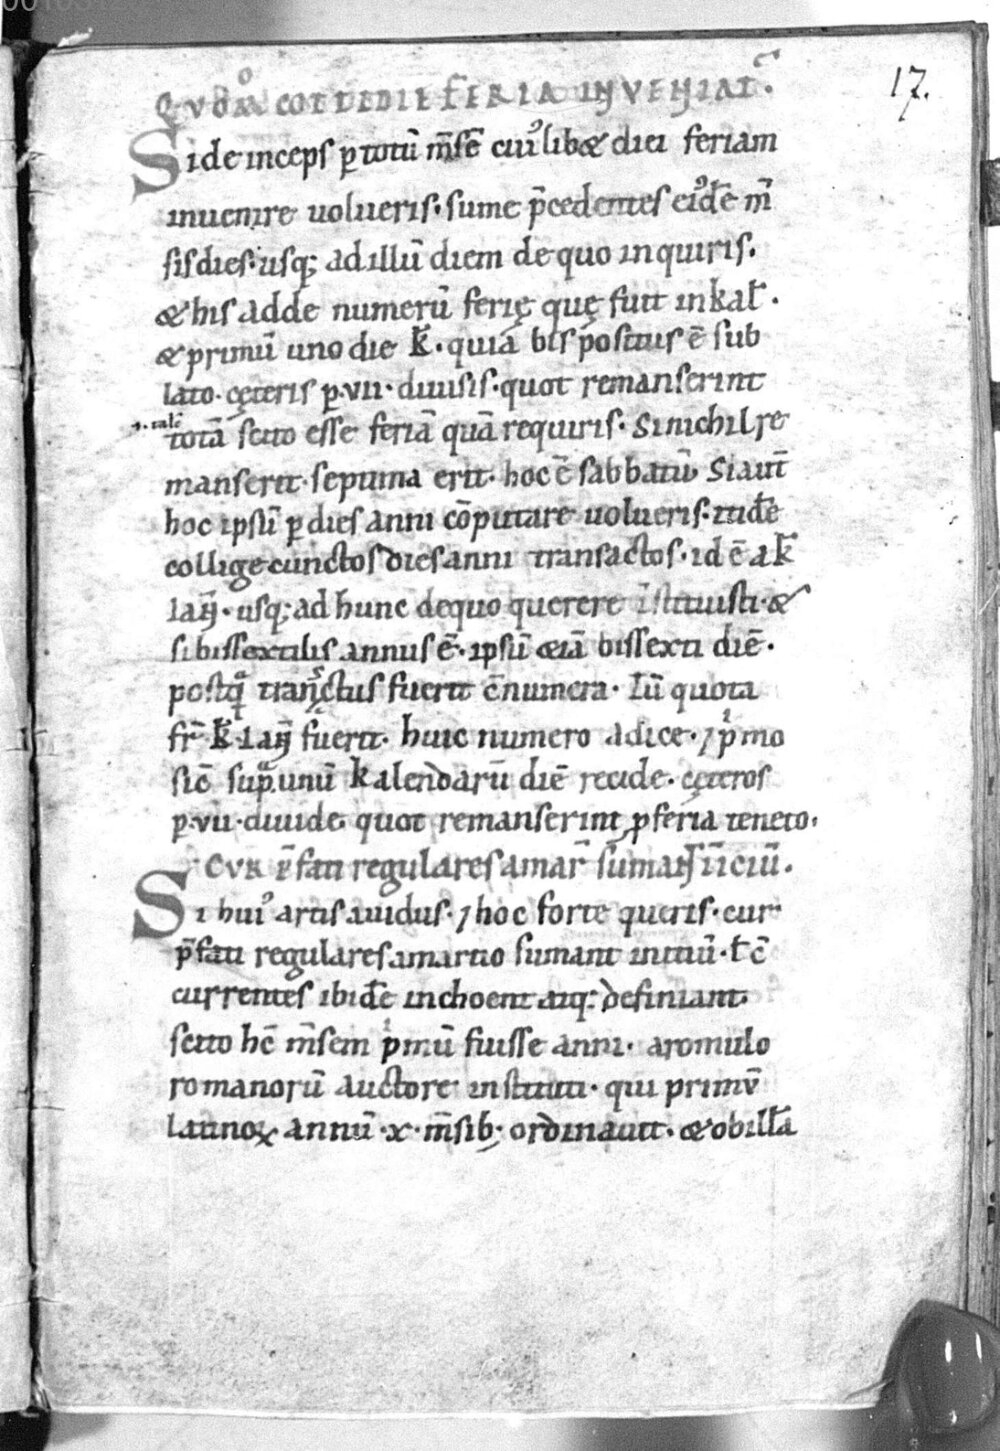 17.
QVOM̊ COTIDIE FERIA INVENIAT᷒.
Si deinceps ꝑ totū m̄sē cuiꝰlib& diei feriam
inuenire uolueris. sume p̄cedentes eiꝰdē m̄
sis dies. usq; ad illū diem de quo inquiris.
& his adde numerū ferię quę fuit in kaƚ.
& primū uno die k̄. quia bis positus ē sub
lato. cęteris ꝑ .vii. diuisis. quot remanserint
.i. talē
totā scito esse feriā quā requiris. Si nichil re
manserit. septima erit. hoc ē sabbatū. Si aut̄
hoc ipsū ꝑ dies anni cōputare uolueris. itidē
collige cunctos dies anni transactos. id ē a k̄
ian̄. usq; ad hunc de quo querere īstituisti. &
si bissextilis annus ē. ipsū &iā bissexti diē.
postq̄ transactus fuerit ēnumera. Tū quota
fr̄ k̄. ian̄ fuerit. huic numero adice. ⁊ pͥmo
sic̄ supͣ unū kalendarū diē recide. cęteros
ꝑ .vii. diuide. quot remanserint ꝓ feria teneto.
CVR p̄fati regulares a mar̄ sūmant īiciū.
Si huiꝰ artis auidus. ⁊ hoc forte queris. cur
p̄fati regulares a martio sumant initiū. ƚ c̄
currentes ibidē inchoent atq; definiant.
scito hc̄ m̄sem pͥmū fuisse anni. a romulo
romanorū auctore instituti. qui primū
latinoꝝ annū .x. m̄sib; ordinauit. & ob illā